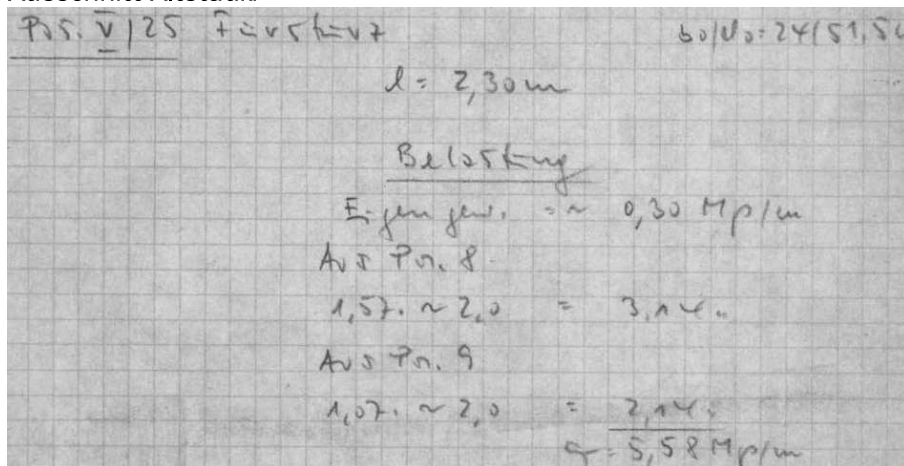 Pos. V/25 Türsturz b₀/d₀=24/51,5
l = 2,30 m
Belastung
Eigengew. = ~ 0,30 Mp/m
Aus Pos. 8
1,57. ~ 2,0 = 3,14 "
Aus Pos. 9
1,07. ~ 2,0 = 2,14 "
q = 5,58 Mp/m